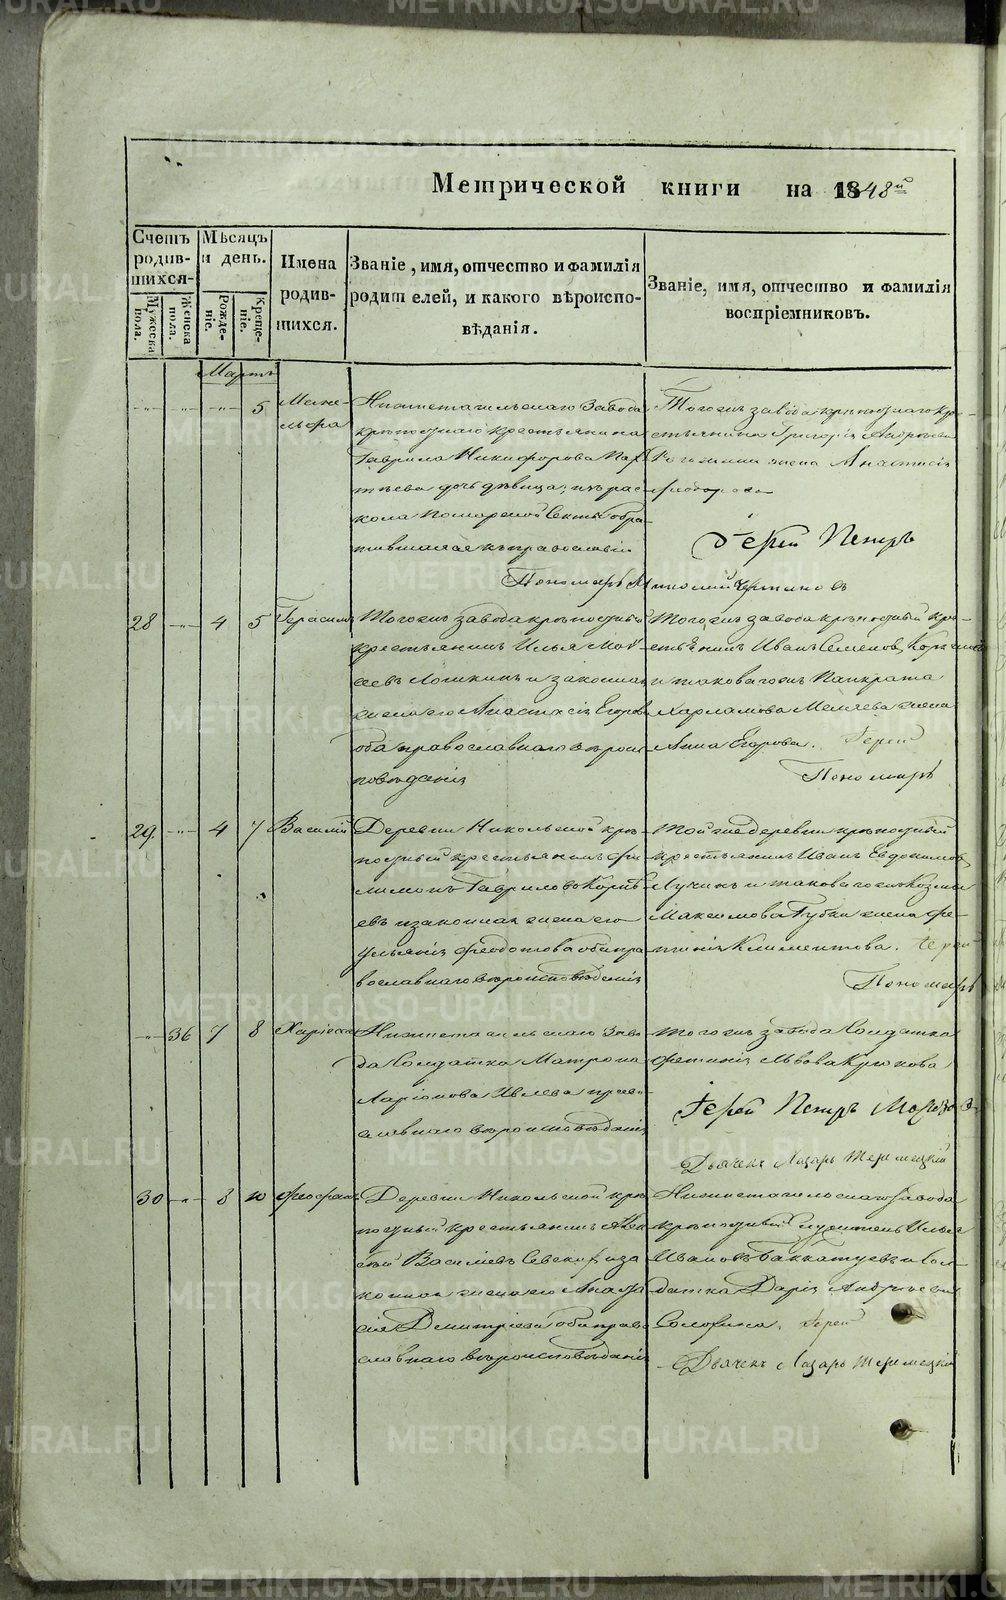 Метрической книги на 1848й
Счетъ родив-шихся-
Мужеска пола.
Женска пола.
Мѣсяцъ и день.
Рожде-ніе.
Креще-ніе.
Имена родив-шихся.
Званіе, имя, отчество и фамилія
родителей, и какого вѣроиспо-
вѣданія.
Званіе, имя, отчество и фамилія
воспріемниковъ.
Мартъ
5
Нижнетагильскаго завода
крѣпостнаго крестьянина
Гаврила Никифорова
дочь дѣвица, изъ рас-
кола Поморской Секты обра-
тившаяся къ православію
Тогожъ завода крѣпостнаго кре-
стьянина Григорія Андреева
жена Анастасія
Феодорова
Іерей Петръ
Пономарь
28
4
5
Герасимъ
Тогожъ завода крѣпостный
крестьянинъ Илья Мои-
сеевъ и законная
жена его Анастасія Егорова
оба православнаго вѣроис-
повѣданія
Тогожъ завода крѣпостный кре-
стьянинъ Иванъ Семеновъ
и таковагожъ Панкрата
Харламова жена
Анна Егорова. Іерей
Пономарь
29
4
7
Василій
Деревни Никольской крѣ-
постный крестьянинъ Фи-
лимонъ Гавриловъ
евъ и законная жена его
Ульянія Феодотова оба пра-
вославнаго вѣроисповѣданія
Той же деревни крѣпостный
крестьянинъ Иванъ Евдокимовъ
Лучинъ и таковагожъ Козмы
Максимова жена Фе-
тинія Климентова. Іерей
Пономарь
36
7
8
Нижнетагильскаго заво-
да Солдатка Матрона
Ларіонова Ивлева право-
славнаго вѣроисповѣданія
Тогожъ завода Солдатка
Фетинія Львова Крюкова
Іерей Петръ
Дьячекъ Лазарь
30
8
10
Феофанъ
Деревни Никольской крѣ-
постный крестьянинъ Алек-
сѣй Васильевъ и за-
конная жена его Анаста-
сія Димитріева оба право-
славнаго вѣроисповѣданія
Нижнетагильскаго завода
крѣпостный служитель Илья
Ивановъ и Сол-
датка Дарія Андреева
Іерей
Дьячекъ Лазарь
METRIKI.GASO-URAL.RU